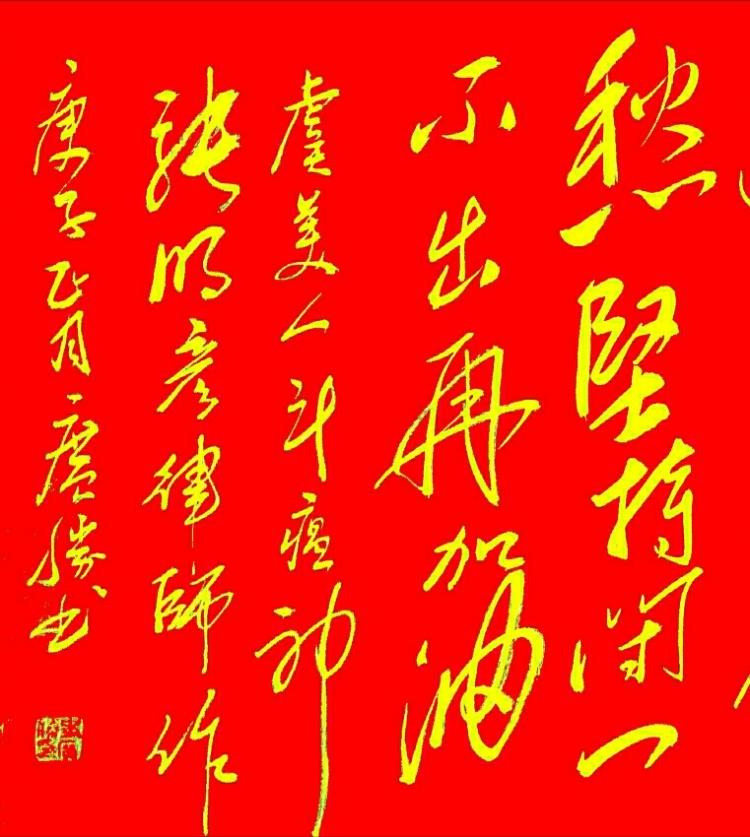 愁坚持闭门
不出再加油
虞美人斗瘟神
张明彦律師作
庚子正月勝书